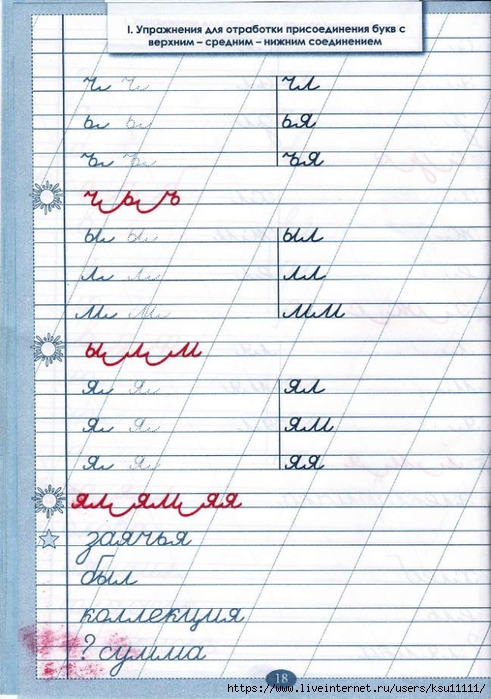 I. Упражнения для отработки присоединения букв с
верхним – средним – нижним соединением
ч ч чл
ь ь ья
ъ ъ ъя
ч ь ъ
ы ы ыл
л л лл
м м мм
ы л м
я я ял
я я ям
я я яя
ял ям яя
заячья
был
коллекция
? сумма
18
https://www.liveinternet.ru/users/ksu11111/